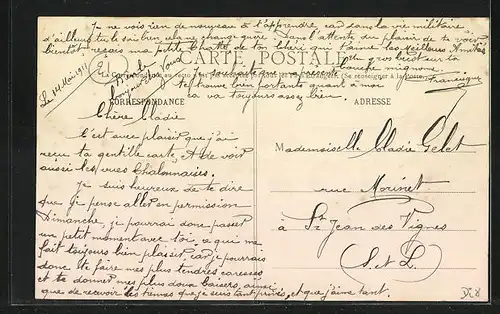 Chère Cladie
C'est avec plaisir que j'ai
reçu ta gentille carte, et de voir
aussi les vues Chalonnaises.
Je suis heureux de te dire
que je pense aller en permission
Dimanche, je pourrai donc passer
un petit moment avec toi, ce qui me
fait toujours bien plaisir, car je pourrais
donc te faire mes plus tendres caresses
et te donner mes plus doux baisers, ainsi
que de recevoir les tiens que je suis tant privé, et que j'aime tant.
Je ne vois rien de nouveau à t'apprendre, car dans la vie militaire
d'ailleurs tu le sais bien change guère. Dans l'attente du plaisir de te voir
bientôt reçois ma petite de ton chéri qui t'aime les meilleurs Amitiés
un gros bicot sur ta
mignonne
Francisque
Le 14 Mai 1911
CARTE POSTALE
(Se renseigner à la
souhaite que ma présente
te trouve bien portante quant à moi
ça va toujours assez bien.
CORRESPONDANCE
ADRESSE
Mademoiselle Cladie Gelet
rue Morinet
à St Jean des Vignes
(S. et L.)